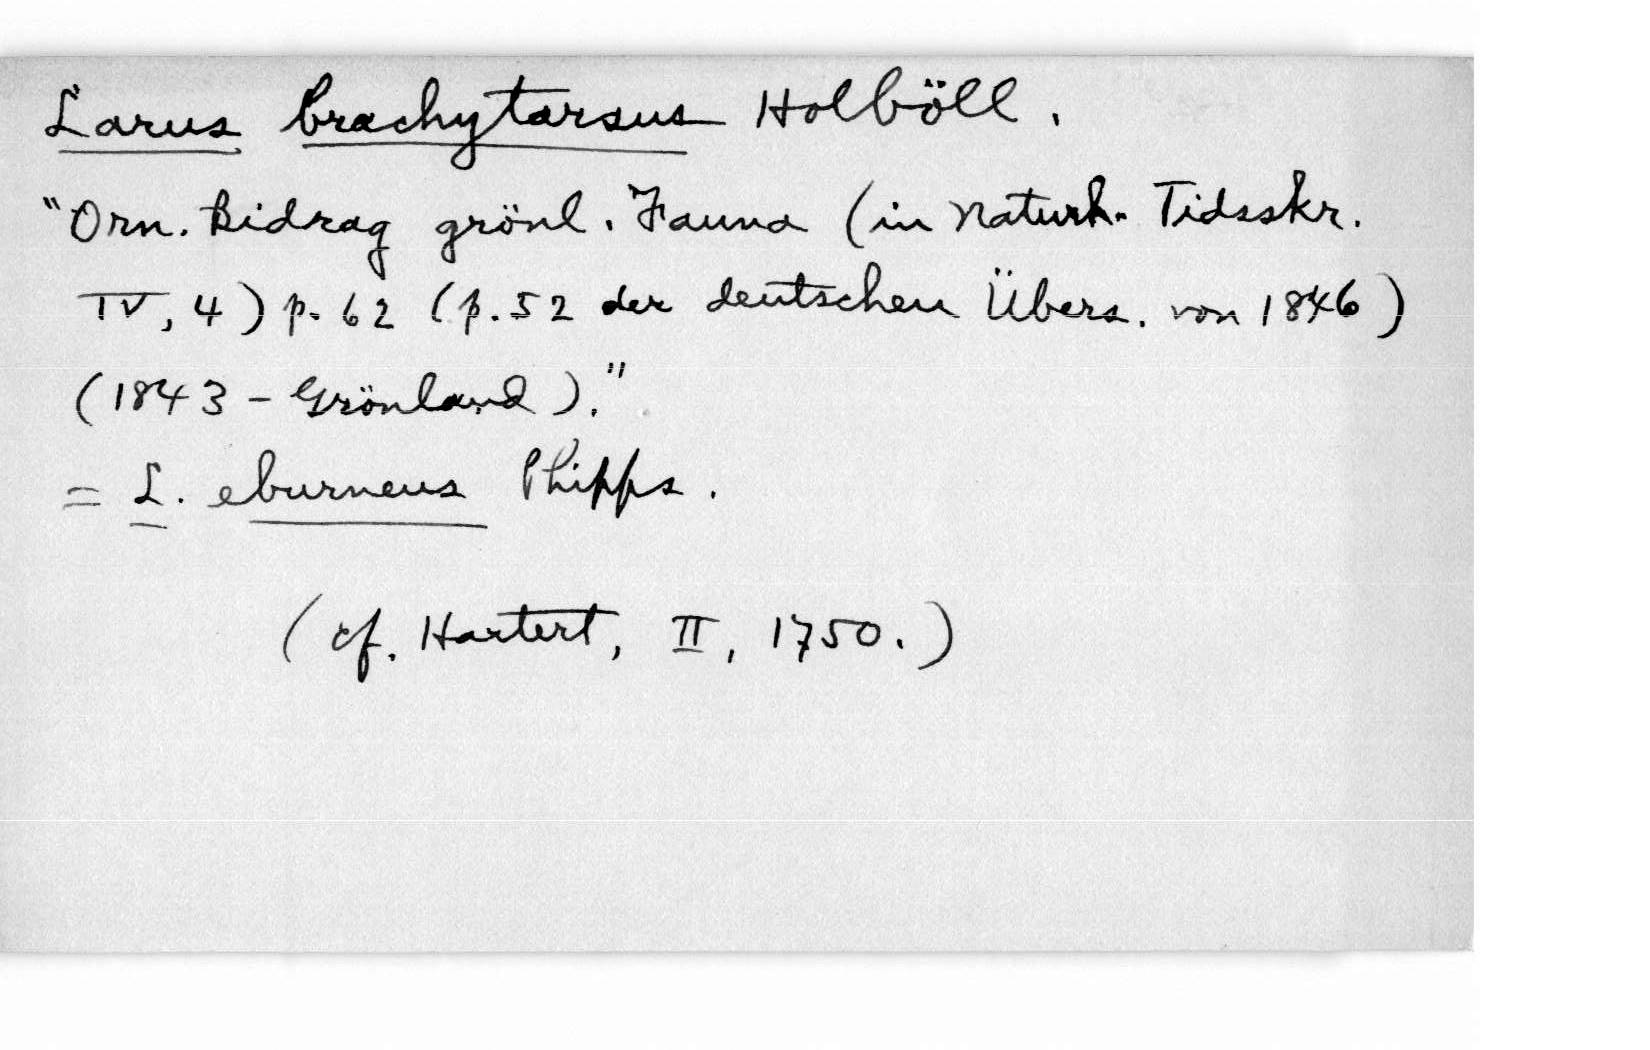 Larus brachytarsus Holböll.
"Orn. Bidrag grönl. Fauna (in Naturh. Tidsskr.
IV, 4) p. 62 (p. 52 der deutschen Übers. von 1846)
(1843 - Grönland)."
= L. eburneus Phipps.
(cf. Hartert, II, 1750.)